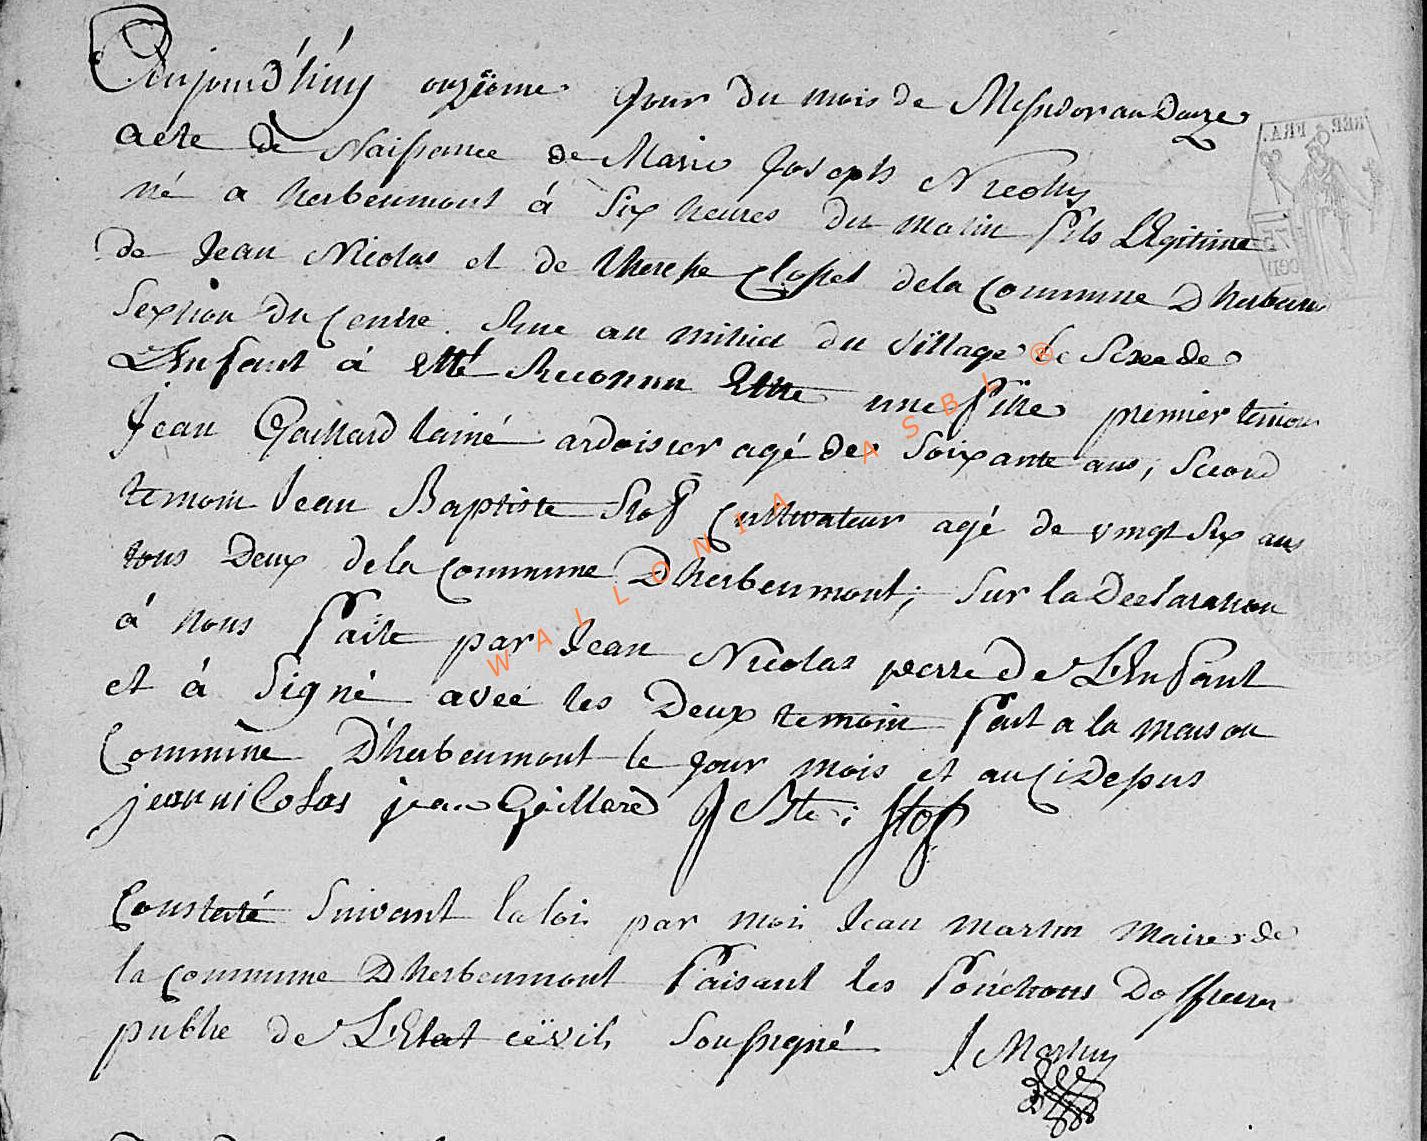 Aujourd'huy onzieme Jour du mois de Messidor an Douze
acte de Naissance de Marie Joseph Nicolas
né a herbeumont á Six heures du matin fils LEgitime
de Jean Nicolas et de therese Closset dela Commune Dherbeum
Sextion du Centre. Rue au milieu du village le Sexe de
LEnfant á Etté Reconnu Etre une fille premier temoin
Jean Gaillard lainé ardoisier agé de Soixante ans, Second
temoin Jean Baptiste Stof Cultivateur agé de vingt Six ans
tous Deux dela Commune Dherbeumont; Sur la Declaration
á nous faite par Jean Nicolas perre de L'Enfant
et á Signé avec les Deux temoin fait a la maison
Commune D'herbeumont le Jour mois et an Ci Depus
jean nicolas jean Gaillard J Bte: Stof
Constaté Suivant la loi par moi Jean Martin Maire de
la Commune Dherbeumont faisant les fonctions Dofficier
publie de L'Etat cëvil Soussigné J Martin
REP. FRA.
WALLONIA ASBL ®